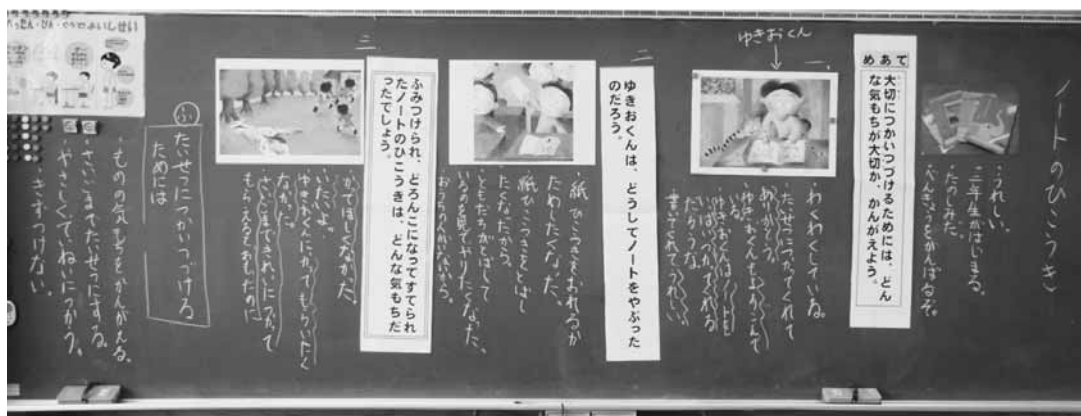 ノートのひこうき
・うれしい。
・二年生がはじまる。
・たのしみだ。
・べんきょうをがんばるぞ。
めあて
大切につかいつづけるためには、どん
な気もちが大切か、かんがえよう。
一、
ゆきおくん
・わくわくしているね。
・たいせつにつかってくれて
ありがとう。
・ゆきおくんもよろこんで
いる。
・ゆきおくんは、ノートを
いっぱいつかってくれる
だろうな。
・書いてくれてうれしい。
二
ゆきおくんは、どうしてノートをやぶった
のだろう。
・紙ひこうきをおれるか
ためしたくなった。
・紙ひこうきをとばし
たくなったから。
・ともだちがとばして
いるのを見てやりたくなった。
三
ふみつけられ、どろんこになってすてられ
たノートのひこうきは、どんな気もちだ
ったでしょう。
・かってほしくなかった。
・いたいよ。
・ゆきおくんにかってもらいたく
なかった。
・さいごまできれいにつかって
もらえるとおもったのに
ふ
たいせつにつかいつづける
ためには
・ものの気もちをかんがえる。
・さいごまでたいせつにする。
・やさしく、ていねいにつかう。
・きずつけない。